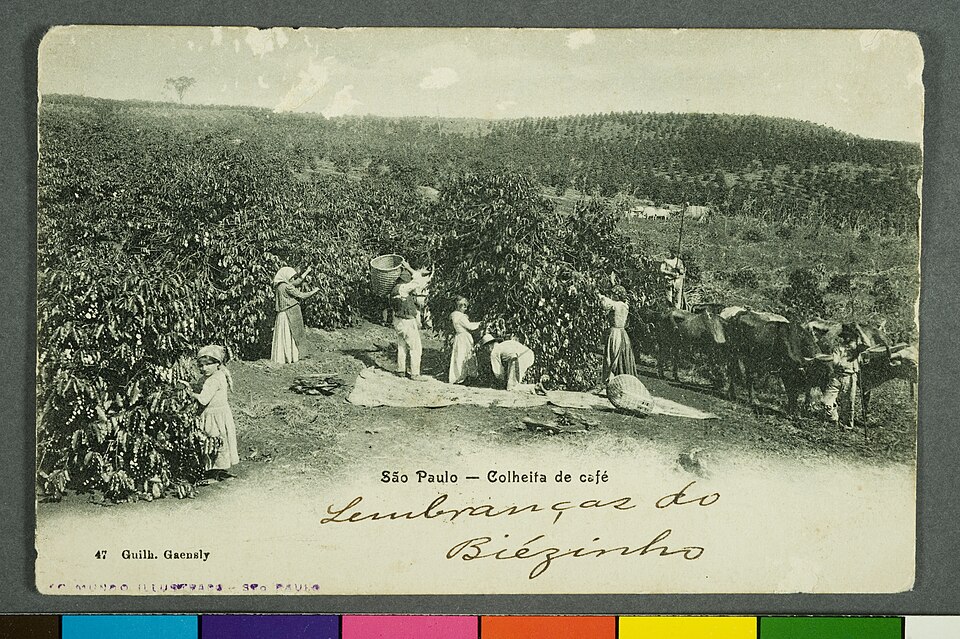 São Paulo — Colheita de café
Lembranças do
Biézinho
47 Guilh. Gaensly
MUNDO ILLUSTRADO - SÃO PAULO